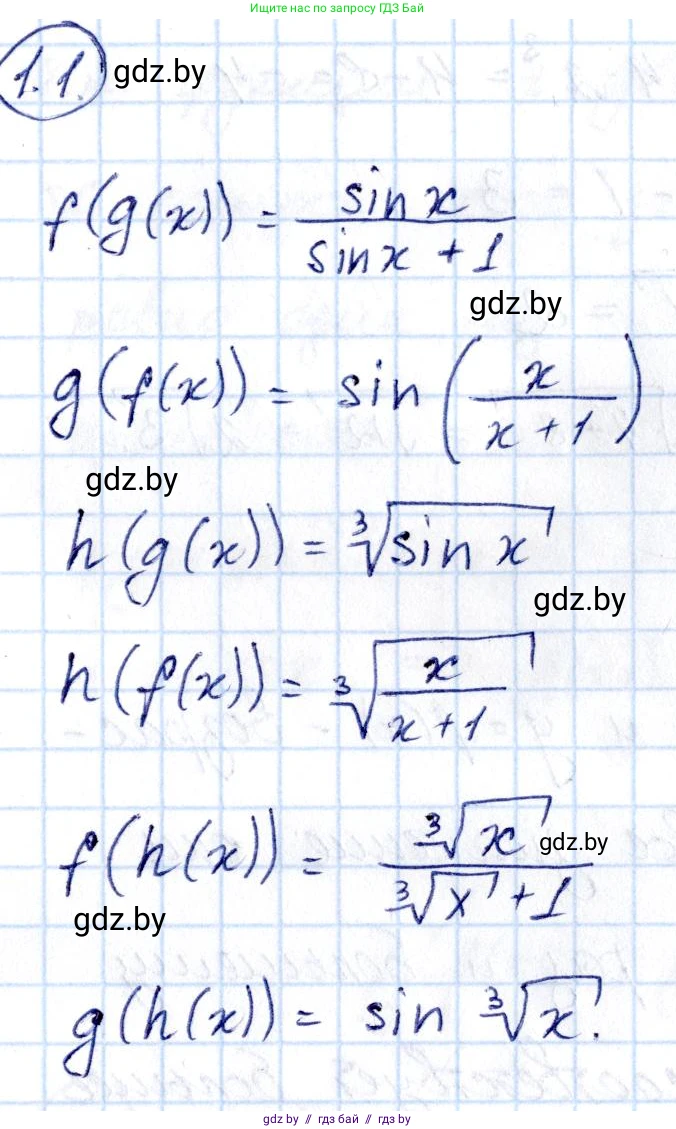 Ищите нас по запросу ГДЗ Бай
1.1. gdz.by
f(g(x)) = sin x / (sin x + 1)
gdz.by
g(f(x)) = sin (x / (x + 1))
gdz.by
h(g(x)) = ∛(sin x)
gdz.by
h(f(x)) = ∛(x / (x + 1))
f(h(x)) = ∛x / (∛x + 1)
gdz.by
gdz.by
g(h(x)) = sin ∛x.
gdz by // гдз бай // gdz by